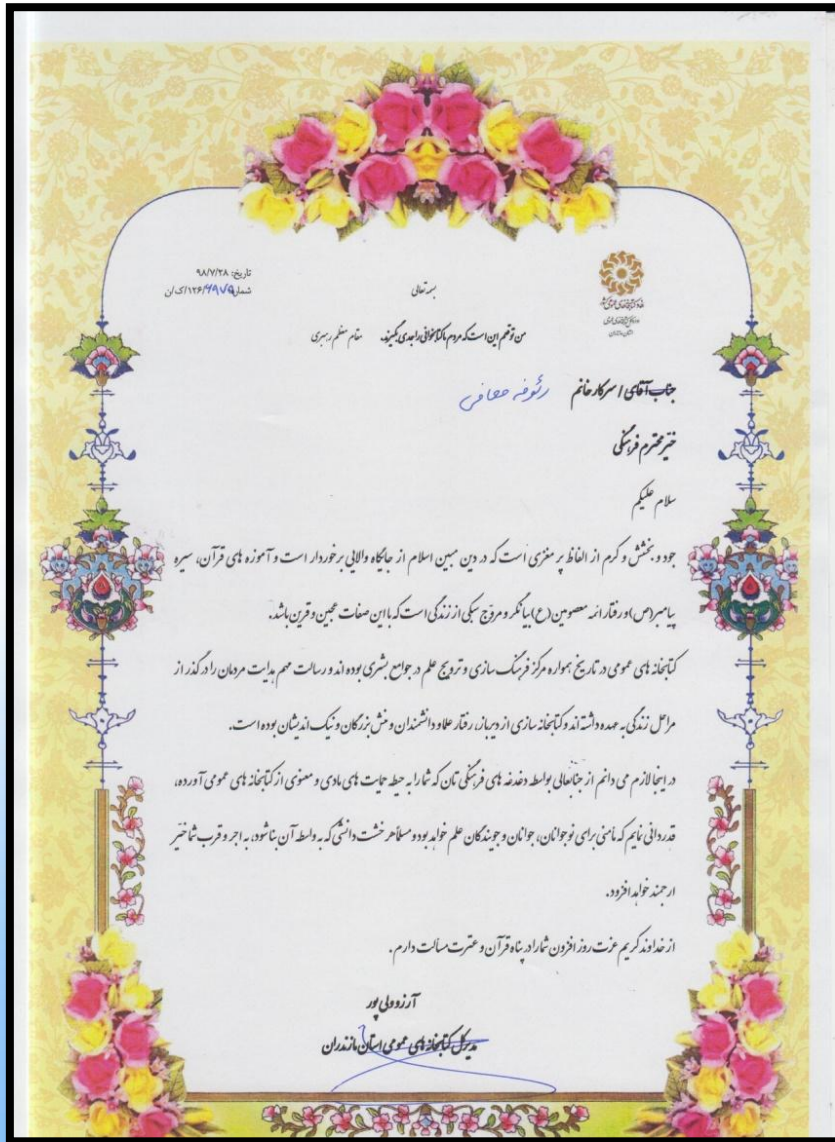 تاریخ: ۹۸/۷/۲۸
شماره ۱۲۶/۲۹۷۵/ک/ن
نهاد کتابخانه‌های عمومی کشور
اداره کل کتابخانه‌های عمومی
استان مازندران
بسمه تعالی
من توقعم این است که مردم ما کتابخوانی را جدی بگیرند. مقام معظم رهبری
جناب آقای / سرکار خانم رئوفه معافی
خیّر محترم فرهنگی
سلام علیکم
جود و بخشش و کرم از الفاظ پر مغزی است که در دین مبین اسلام از جایگاه والایی برخوردار است و آموزه های قرآن، سیره
پیامبر(ص) و رفتار ائمه معصومین(ع) بیانگر و مروّج سبکی از زندگی است که با این صفات عجین و قرین باشد.
کتابخانه های عمومی در تاریخ همواره مرکز فرهنگ سازی و ترویج علم در جوامع بشری بوده اند و رسالت مهم هدایت مردمان را در گذر از
مراحل زندگی به عهده داشته اند و کتابخانه سازی از دیرباز، رفتار علما و دانشمندان و منش بزرگان و نیک اندیشان بوده است.
در اینجا لازم می دانم از جنابعالی بواسطه دغدغه های فرهنگی تان که شما را به حیطه حمایت های مادی و معنوی از کتابخانه های عمومی آورده،
قدردانی نمایم که مأمنی برای نوجوانان، جوانان و جویندگان علم خواهد بود و مسلماً هر خشت دانشی که به واسطه آن بنا شود، به اجر و قرب شما خیّر
ارجمند خواهد افزود.
از خداوند کریم عزت روز افزون شما را در پناه قرآن و عترت مسألت دارم.
آرزو ولی پور
مدیرکل کتابخانه های عمومی استان مازندران